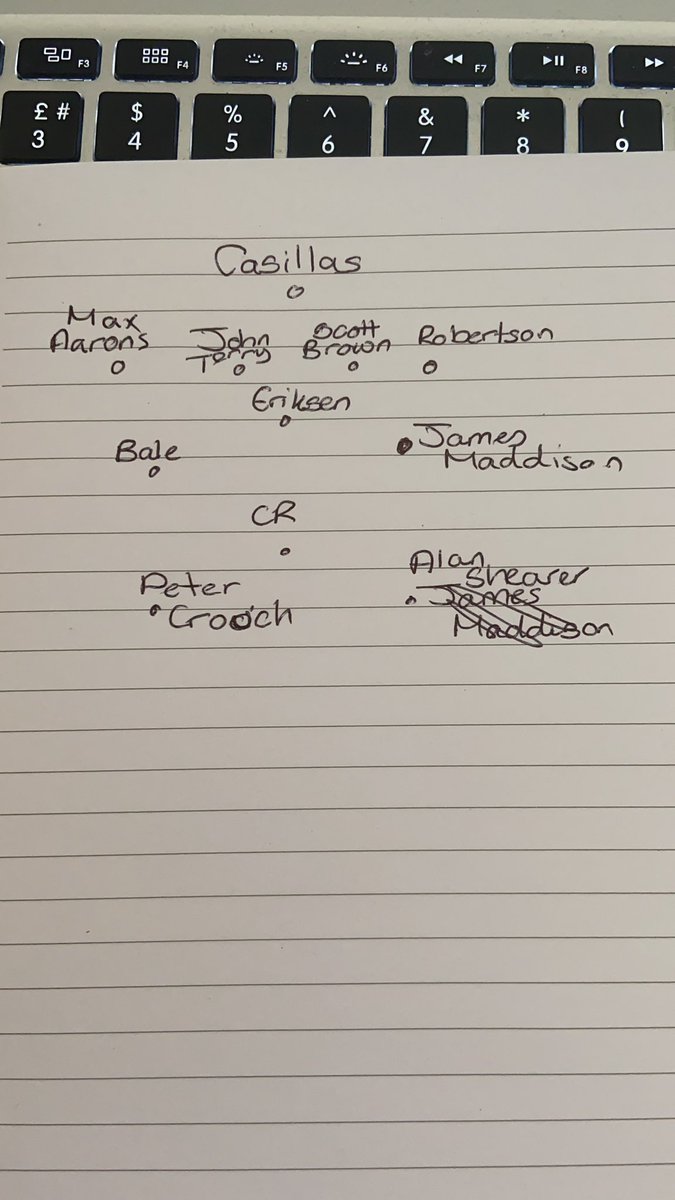 F3 F4 F5 F6 F7 F8
£ # $ % ^ & * (
3 4 5 6 7 8 9
Casillas
Max
Aarons
John
Terry
Scott
Brown
Robertson
Eriksen
Bale
James
Maddison
CR
Peter
Crouch
Alan
Shearer
James
Maddison